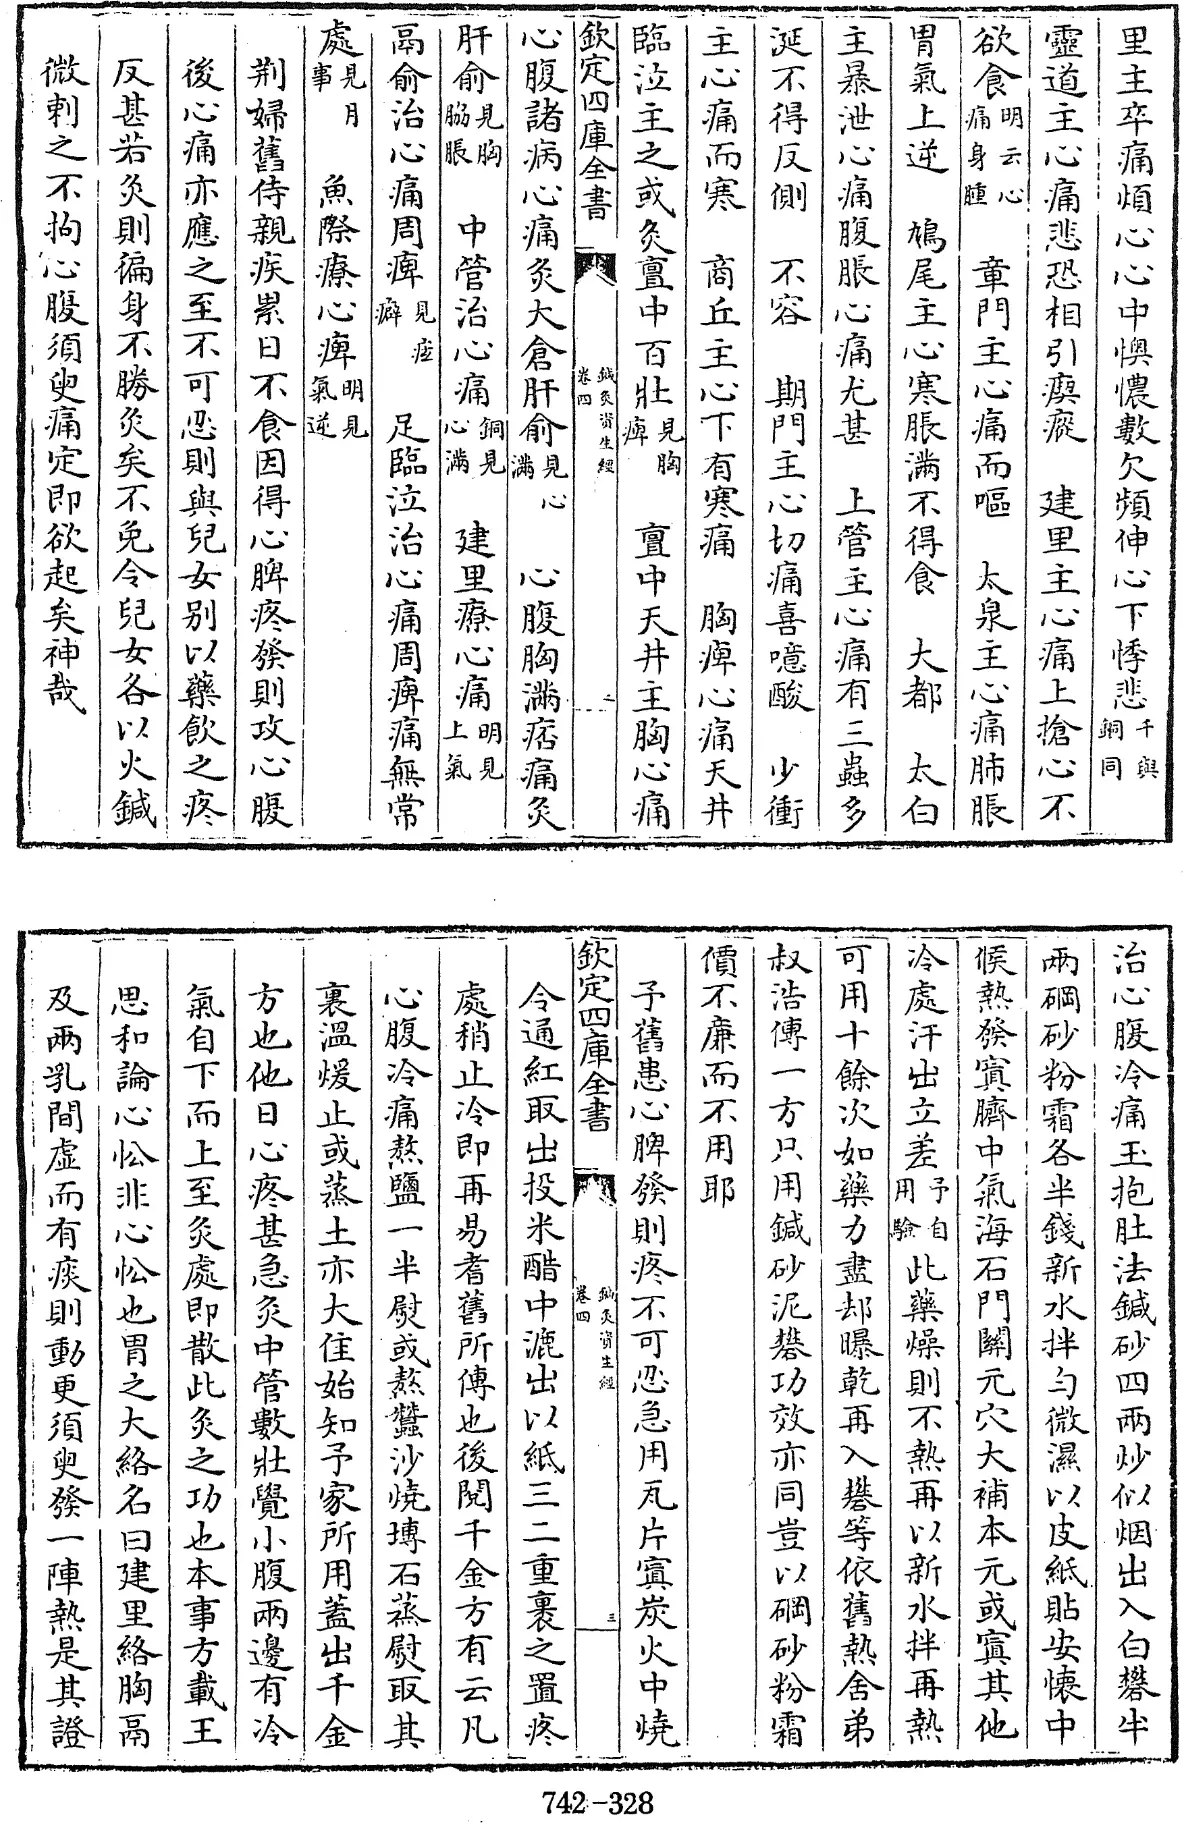 里主卒痛煩心心中懊憹數欠頻伸心下悸悲千與銅同
靈道主心痛悲恐相引瘈瘲　建里主心痛上搶心不
欲食明云心痛身腫　章門主心痛而嘔　太泉主心痛肺脹
胃氣上逆　鳩尾主心寒脹滿不得食　大都　太白
主暴泄心痛腹脹心痛尤甚　上管主心痛有三蟲多
涎不得反側　不容　期門主心切痛喜噫酸　少衝
主心痛而寒　商丘主心下有寒痛　胸痺心痛天井
臨泣主之或灸亶中百壯見胸痺　亶中天井主胸心痛
欽定四庫全書　鍼灸資生經卷四　二
心腹諸病心痛灸大倉肝俞見心滿　心腹胸滿痞痛灸
肝俞見胸脇脹　中管治心痛銅見心滿　建里療心痛明見上氣
鬲俞治心痛周痺見痃癖　足臨泣治心痛周痺痛無常
處見月事　魚際療心痺明見氣逆
荆婦舊侍親疾累日不食因得心脾疼發則攻心腹
後心痛亦應之至不可忍則與兒女別以藥飲之疼
反甚若灸則徧身不勝灸矣不免令兒女各以火鍼
微刺之不拘心腹須臾痛定即欲起矣神哉
治心腹冷痛玉抱肚法鍼砂四兩炒似烟出入白礬半
兩碙砂粉霜各半錢新水拌勻微濕以皮紙貼安懷中
候熱發寘臍中氣海石門關元穴大補本元或寘其他
冷處汗出立差予自用驗此藥燥則不熱再以新水拌再熱
可用十餘次如藥力盡却曝乾再入礬等依舊熱舍弟
叔浩傳一方只用鍼砂泥礬功效亦同豈以碙砂粉霜
價不廉而不用耶
予舊患心脾發則疼不可忍急用瓦片寘炭火中燒
欽定四庫全書　鍼灸資生經卷四　三
令通紅取出投米醋中漉出以紙三二重裹之置疼
處稍止冷即再易耆舊所傳也後閱千金方有云凡
心腹冷痛熬鹽一半熨或熬蠶沙燒塼石蒸熨取其
裏溫煖止或蒸土亦大佳始知予家所用蓋出千金
方也他日心疼甚急灸中管數壯覺小腹兩邊有冷
氣自下而上至灸處即散此灸之功也本事方載王
思和論心忪非心忪也胃之大絡名曰建里絡胸鬲
及兩乳間虛而有痰則動更須臾發一陣熱是其證
742-328